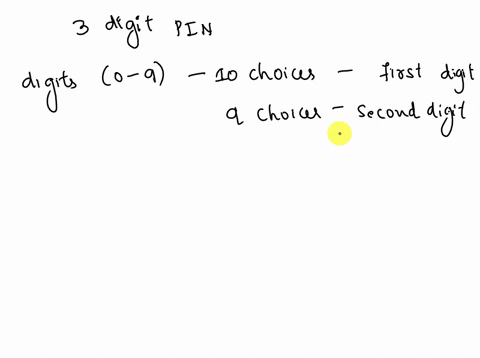 3 digit PIN
digits (0-9) - 10 choices - first digit
9 choices - second digit